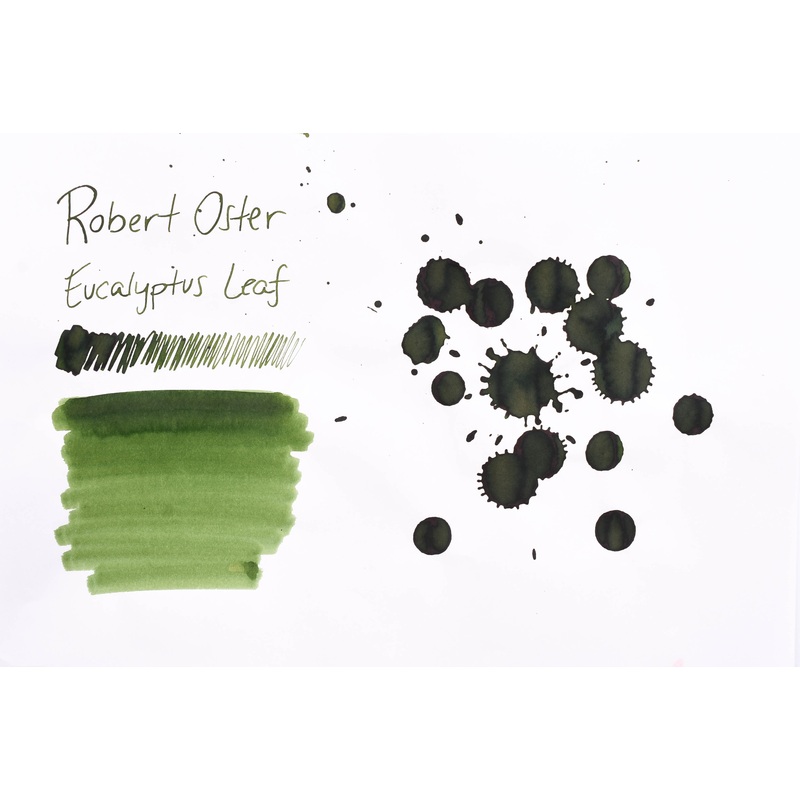 Robert Oster
Eucalyptus Leaf